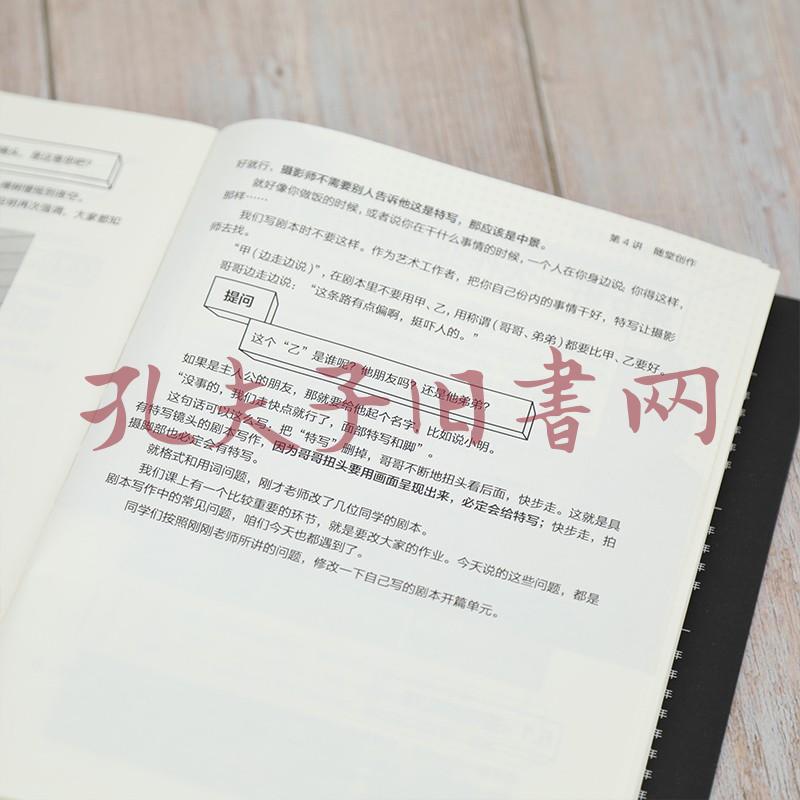 镜头，是这意思吧？
大家都知
第4讲 随堂创作
好就行，摄影师不需要别人告诉他这是特写，那应该是中景。
就好像你做饭的时候，或者说你在干什么事情的时候，一个人在你身边说：你得这样，
那样……
我们写剧本时不要这样。作为艺术工作者，把你自己份内的事情干好，特写让摄影
师去找。
“甲（边走边说）”，在剧本里不要用甲、乙，用称谓（哥哥、弟弟）都要比甲、乙要好。
哥哥边走边说：“这条路有点偏啊，挺吓人的。”
提问
这个“乙”是谁呢？他朋友吗？还是他弟弟？
如果是主人公的朋友，那就要给他起个名字，比如说小明。
“没事的，我们走快点就行了，面部特写和脚”。
这句话可以这么写：把“特写”删掉，哥哥不断地扭头看后面，快步走。这就是具
有特写镜头的剧本写作，因为哥哥扭头要用画面呈现出来，必定会给特写；快步走，拍
摄脚部也必定会有特写。
就格式和用词问题，刚才老师改了几位同学的剧本。
我们课上有一个比较重要的环节，就是要改大家的作业。今天说的这些问题，都是
剧本写作中的常见问题，咱们今天也都遇到了。
同学们按照刚刚老师所讲的问题，修改一下自己写的剧本开篇单元。
孔夫子旧书网